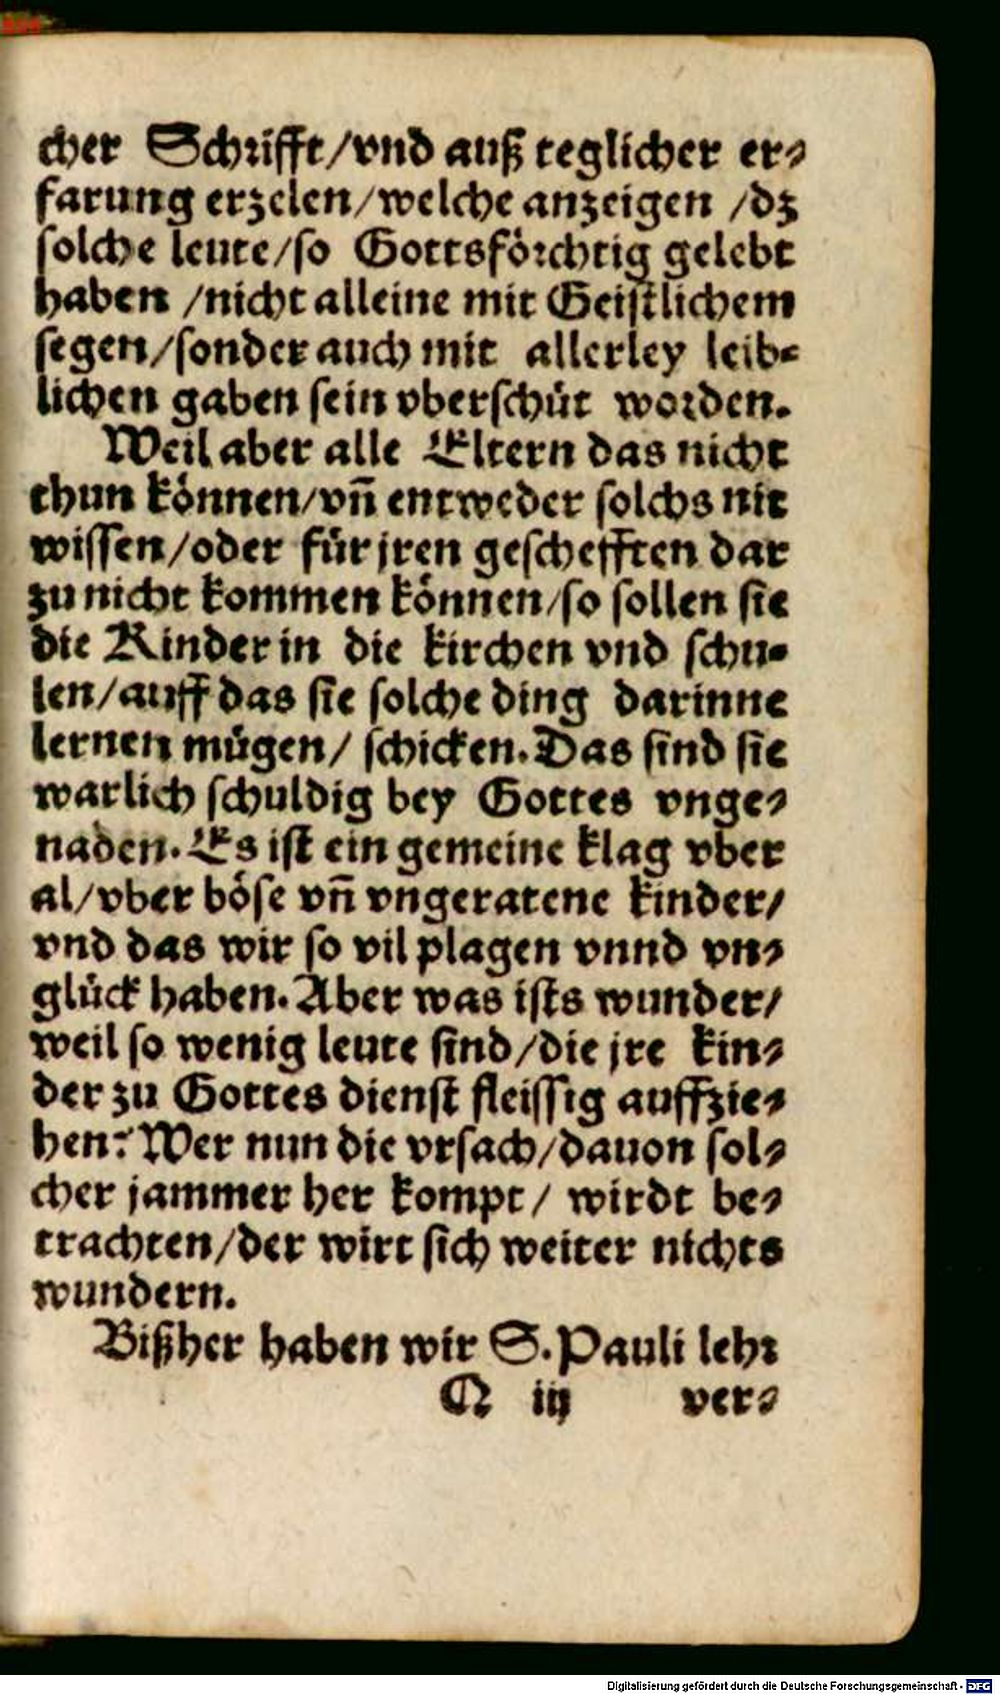 cher Schrifft/vnd auß teglicher er⸗
farung erzelen/welche anzeigen /dz
solche leute/so Gottsförchtig gelebt
haben /nicht alleine mit Geistlichem
segen/sonder auch mit allerley leib⸗
lichen gaben sein vberschüt worden.
Weil aber alle Eltern das nicht
thun können/vñ entweder solchs nit
wissen/oder für jren geschefften dar
zu nicht kommen können/so sollen sie
die Kinder in die kirchen vnd schu⸗
len/auff das sie solche ding darinne
lernen mügen/ schicken. Das sind sie
warlich schuldig bey Gottes vnge⸗
naden. Es ist ein gemeine klag vber
al/vber böse vñ vngeratene kinder/
vnd das wir so vil plagen vnnd vn⸗
glück haben. Aber was ists wunder/
weil so wenig leute sind/die jre kin⸗
der zu Gottes dienst fleissig auffzie⸗
hen? Wer nun die vrsach/dauon sol⸗
cher jammer her kompt/ wirdt be⸗
trachten/der wirt sich weiter nichts
wundern.
Bißher haben wir S. Pauli lehr
Q iij ver⸗
Digitalisierung gefördert durch die Deutsche Forschungsgemeinschaft - DFG